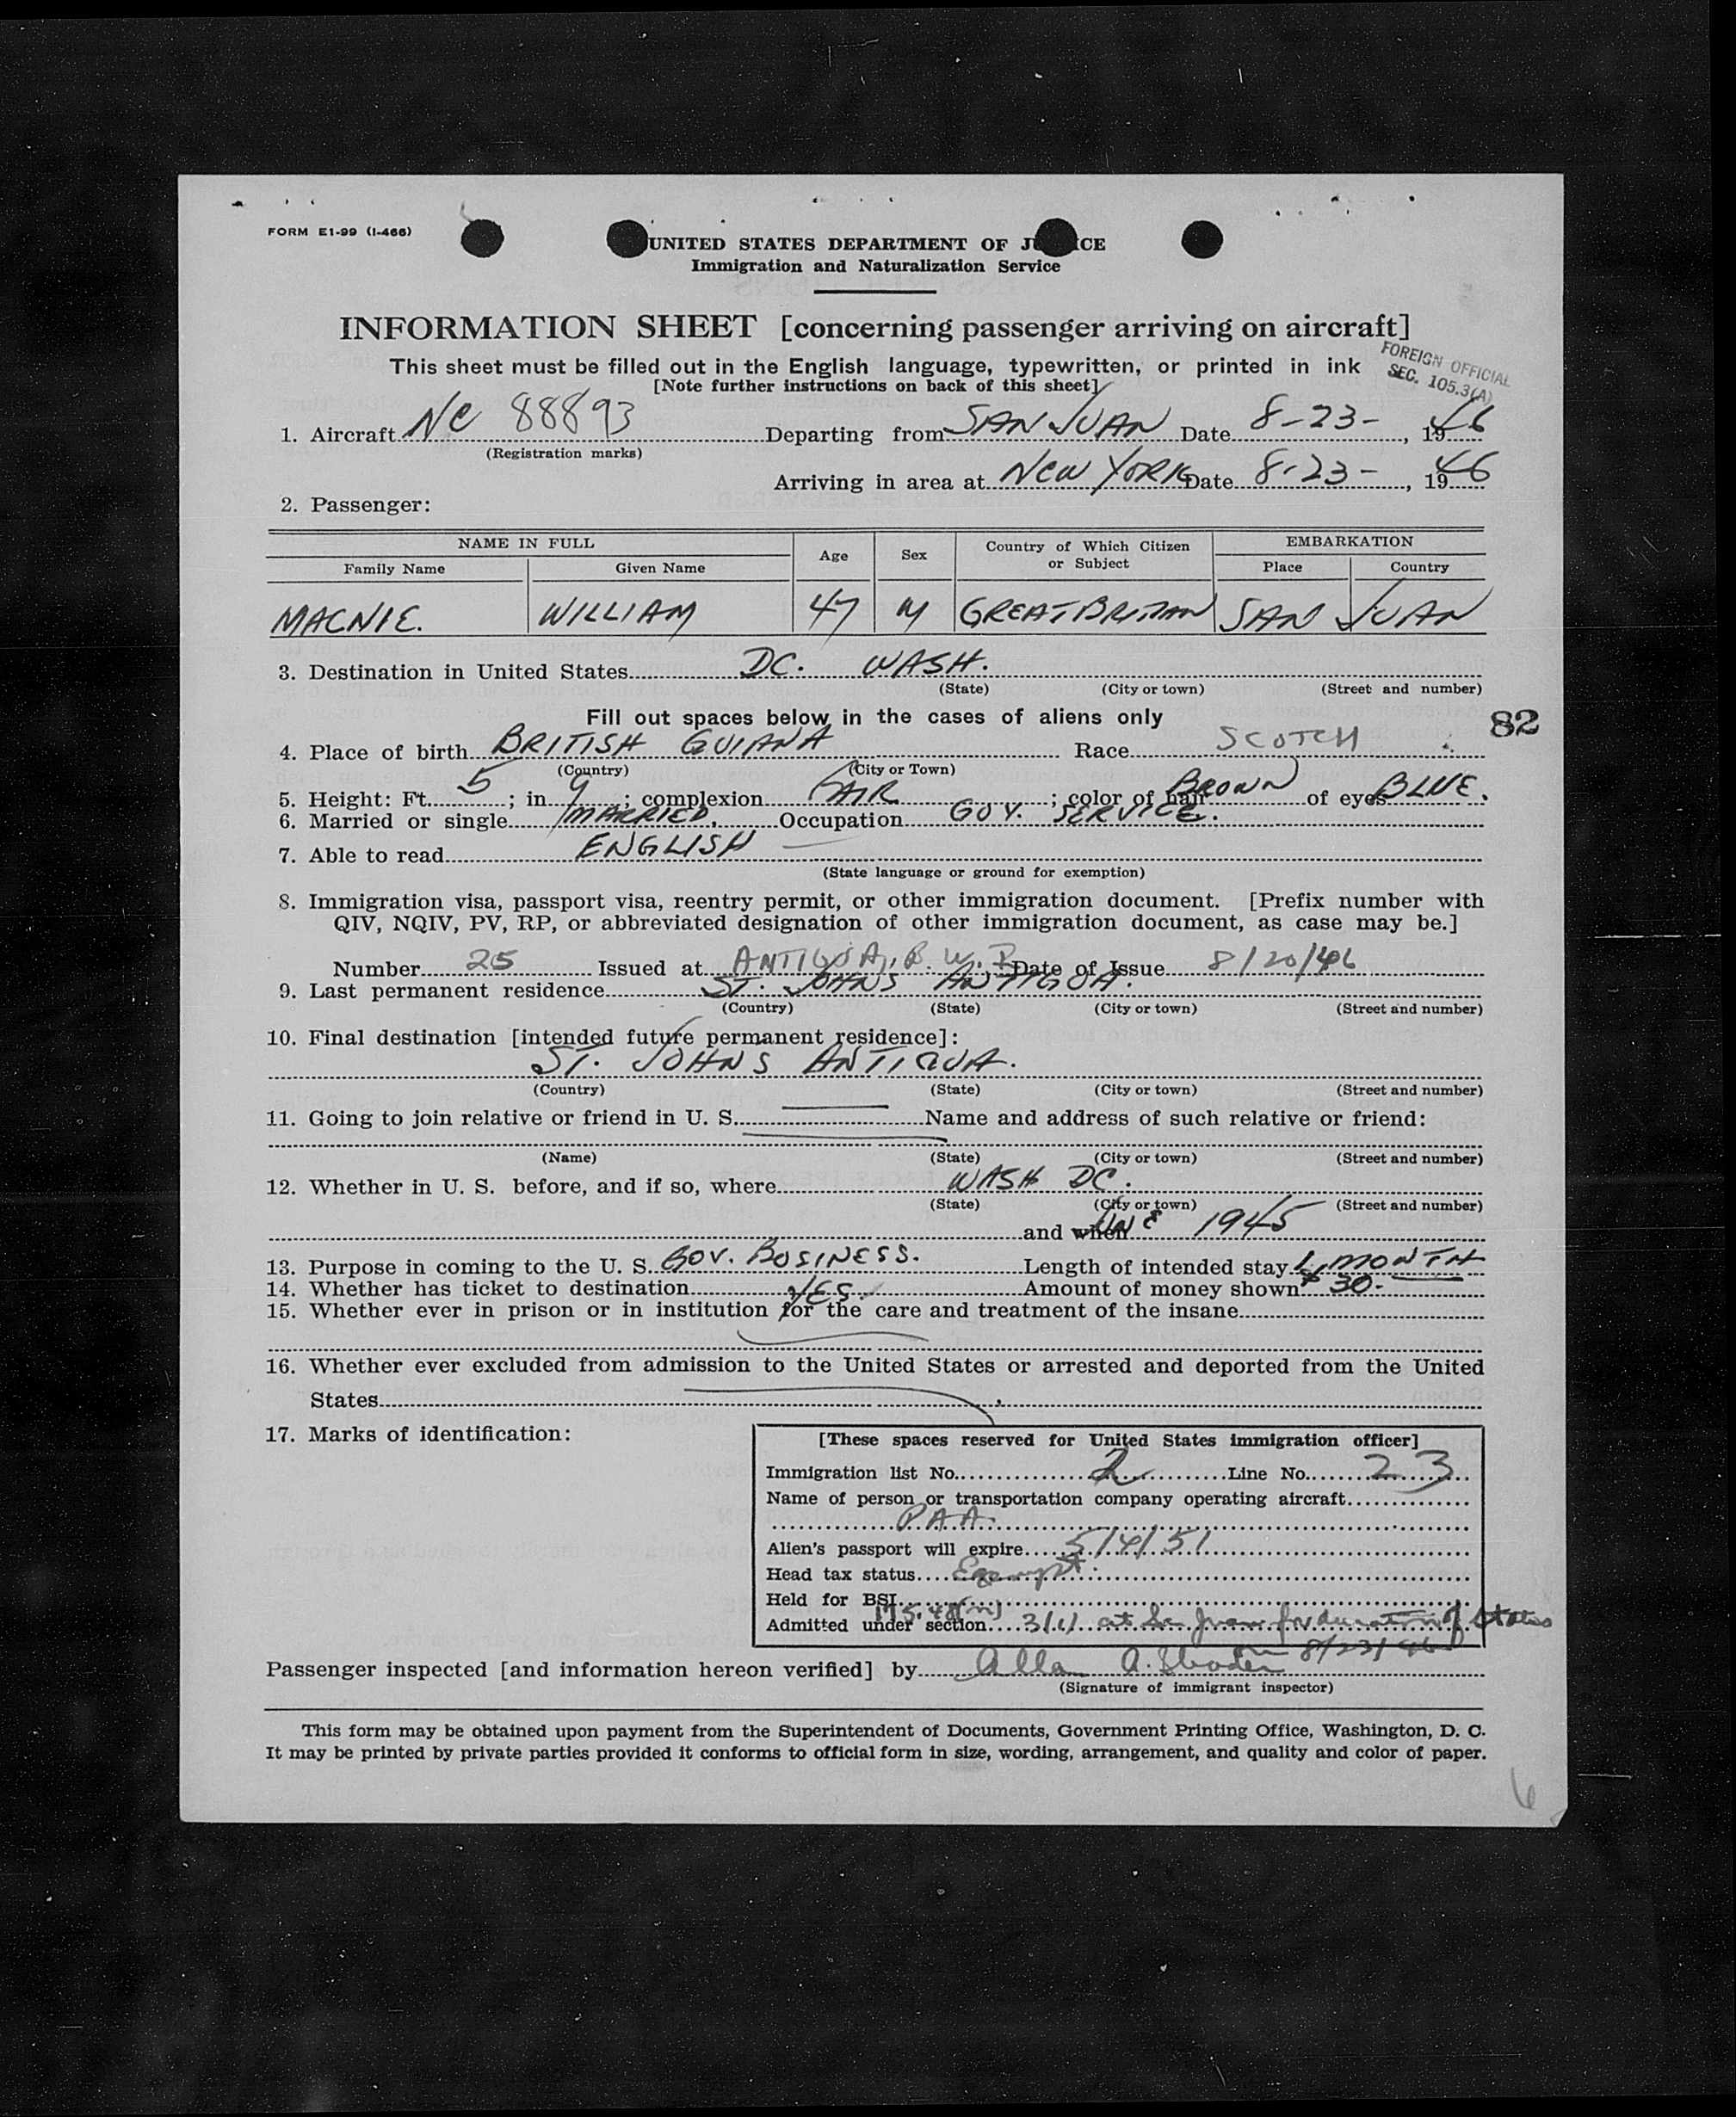 FORM E1-99 (I-466)
UNITED STATES DEPARTMENT OF J CE
Immigration and Naturalization Service
INFORMATION SHEET [concerning passenger arriving on aircraft]
This sheet must be filled out in the English language, typewritten, or printed in ink
[Note further instructions on back of this sheet]
FOREIGN OFFICIAL
SEC. 105.3(A)
1. Aircraft NC 88893 Departing from SAN JUAN Date 8-23-, 1946
(Registration marks)
Arriving in area at NEW YORK Date 8-23-, 1946
2. Passenger:
NAME IN FULL Age Sex Country of Which Citizen or Subject EMBARKATION
Family Name Given Name Place Country
MACNIE. WILLIAM 47 M GREAT BRITAN SAN JUAN
3. Destination in United States DC. WASH.
(State) (City or town) (Street and number)
Fill out spaces below in the cases of aliens only
82
4. Place of birth BRITISH GUIANA Race SCOTCH
(Country) (City or Town)
5. Height: Ft. 5; in 9; complexion FAIR; color of hair BROWN of eyes BLUE.
6. Married or single MARRIED. Occupation GOV. SERVICE.
7. Able to read ENGLISH
(State language or ground for exemption)
8. Immigration visa, passport visa, reentry permit, or other immigration document. [Prefix number with
QIV, NQIV, PV, RP, or abbreviated designation of other immigration document, as case may be.]
Number 25 Issued at ANTIGUA, B.W.I. Date of Issue 8/20/46
9. Last permanent residence ST. JOHNS ANTIGUA.
(Country) (State) (City or town) (Street and number)
10. Final destination [intended future permanent residence]:
ST. JOHNS ANTIGUA.
(Country) (State) (City or town) (Street and number)
11. Going to join relative or friend in U. S. Name and address of such relative or friend:
(Name) (State) (City or town) (Street and number)
12. Whether in U. S. before, and if so, where WASH DC.
(State) (City or town) (Street and number)
and when JUNE 1945
13. Purpose in coming to the U. S. GOV. BUSINESS. Length of intended stay 1 MONTH
14. Whether has ticket to destination YES. Amount of money shown $30-
15. Whether ever in prison or in institution for the care and treatment of the insane
16. Whether ever excluded from admission to the United States or arrested and deported from the United
States
17. Marks of identification:
[These spaces reserved for United States immigration officer]
Immigration list No. 2 Line No. 23
Name of person or transportation company operating aircraft
PAA
Alien's passport will expire 5/4/51
Head tax status Exempt.
Held for BSI
175.48(m)
Admitted under section 3(1) at San Juan for duration of status
8/23/46
Passenger inspected [and information hereon verified] by Allan A.
(Signature of immigrant inspector)
This form may be obtained upon payment from the Superintendent of Documents, Government Printing Office, Washington, D. C.
It may be printed by private parties provided it conforms to official form in size, wording, arrangement, and quality and color of paper.
6